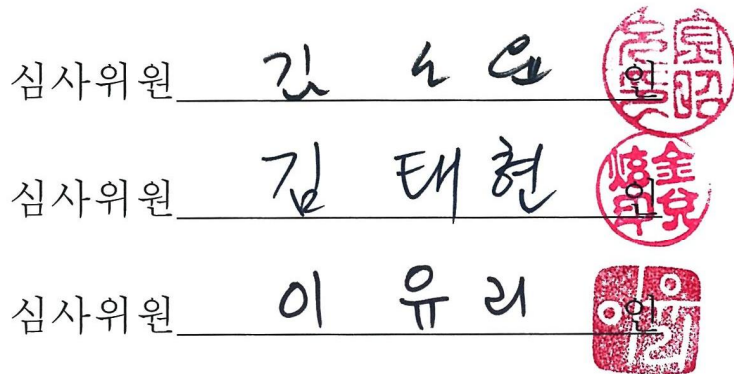 심사위원 김 소 인
심사위원 김 태 현 인
심사위원 이 유 리 인